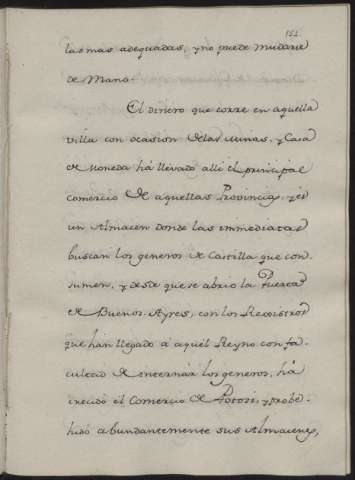 152
las mas adequadas, y no puede mudarse
de Mano.
El dinero que corre en aquella
villa con ocasion de las Minas, y Casa
de Moneda há llevado alli el principal
comercio de aquellas Provincias, y es
un Almacén donde las immediatas
buscan los generos de Castilla que con-
sumen, y desde que se abrio la Puerta
de Buenos-Ayres, con los Rexistros
que han llegado á aquél Reyno con fa-
cultad de internár los generos, há
crecido el Comercio de Potosi, y probe-
hido abundantemente sus Almacenes,